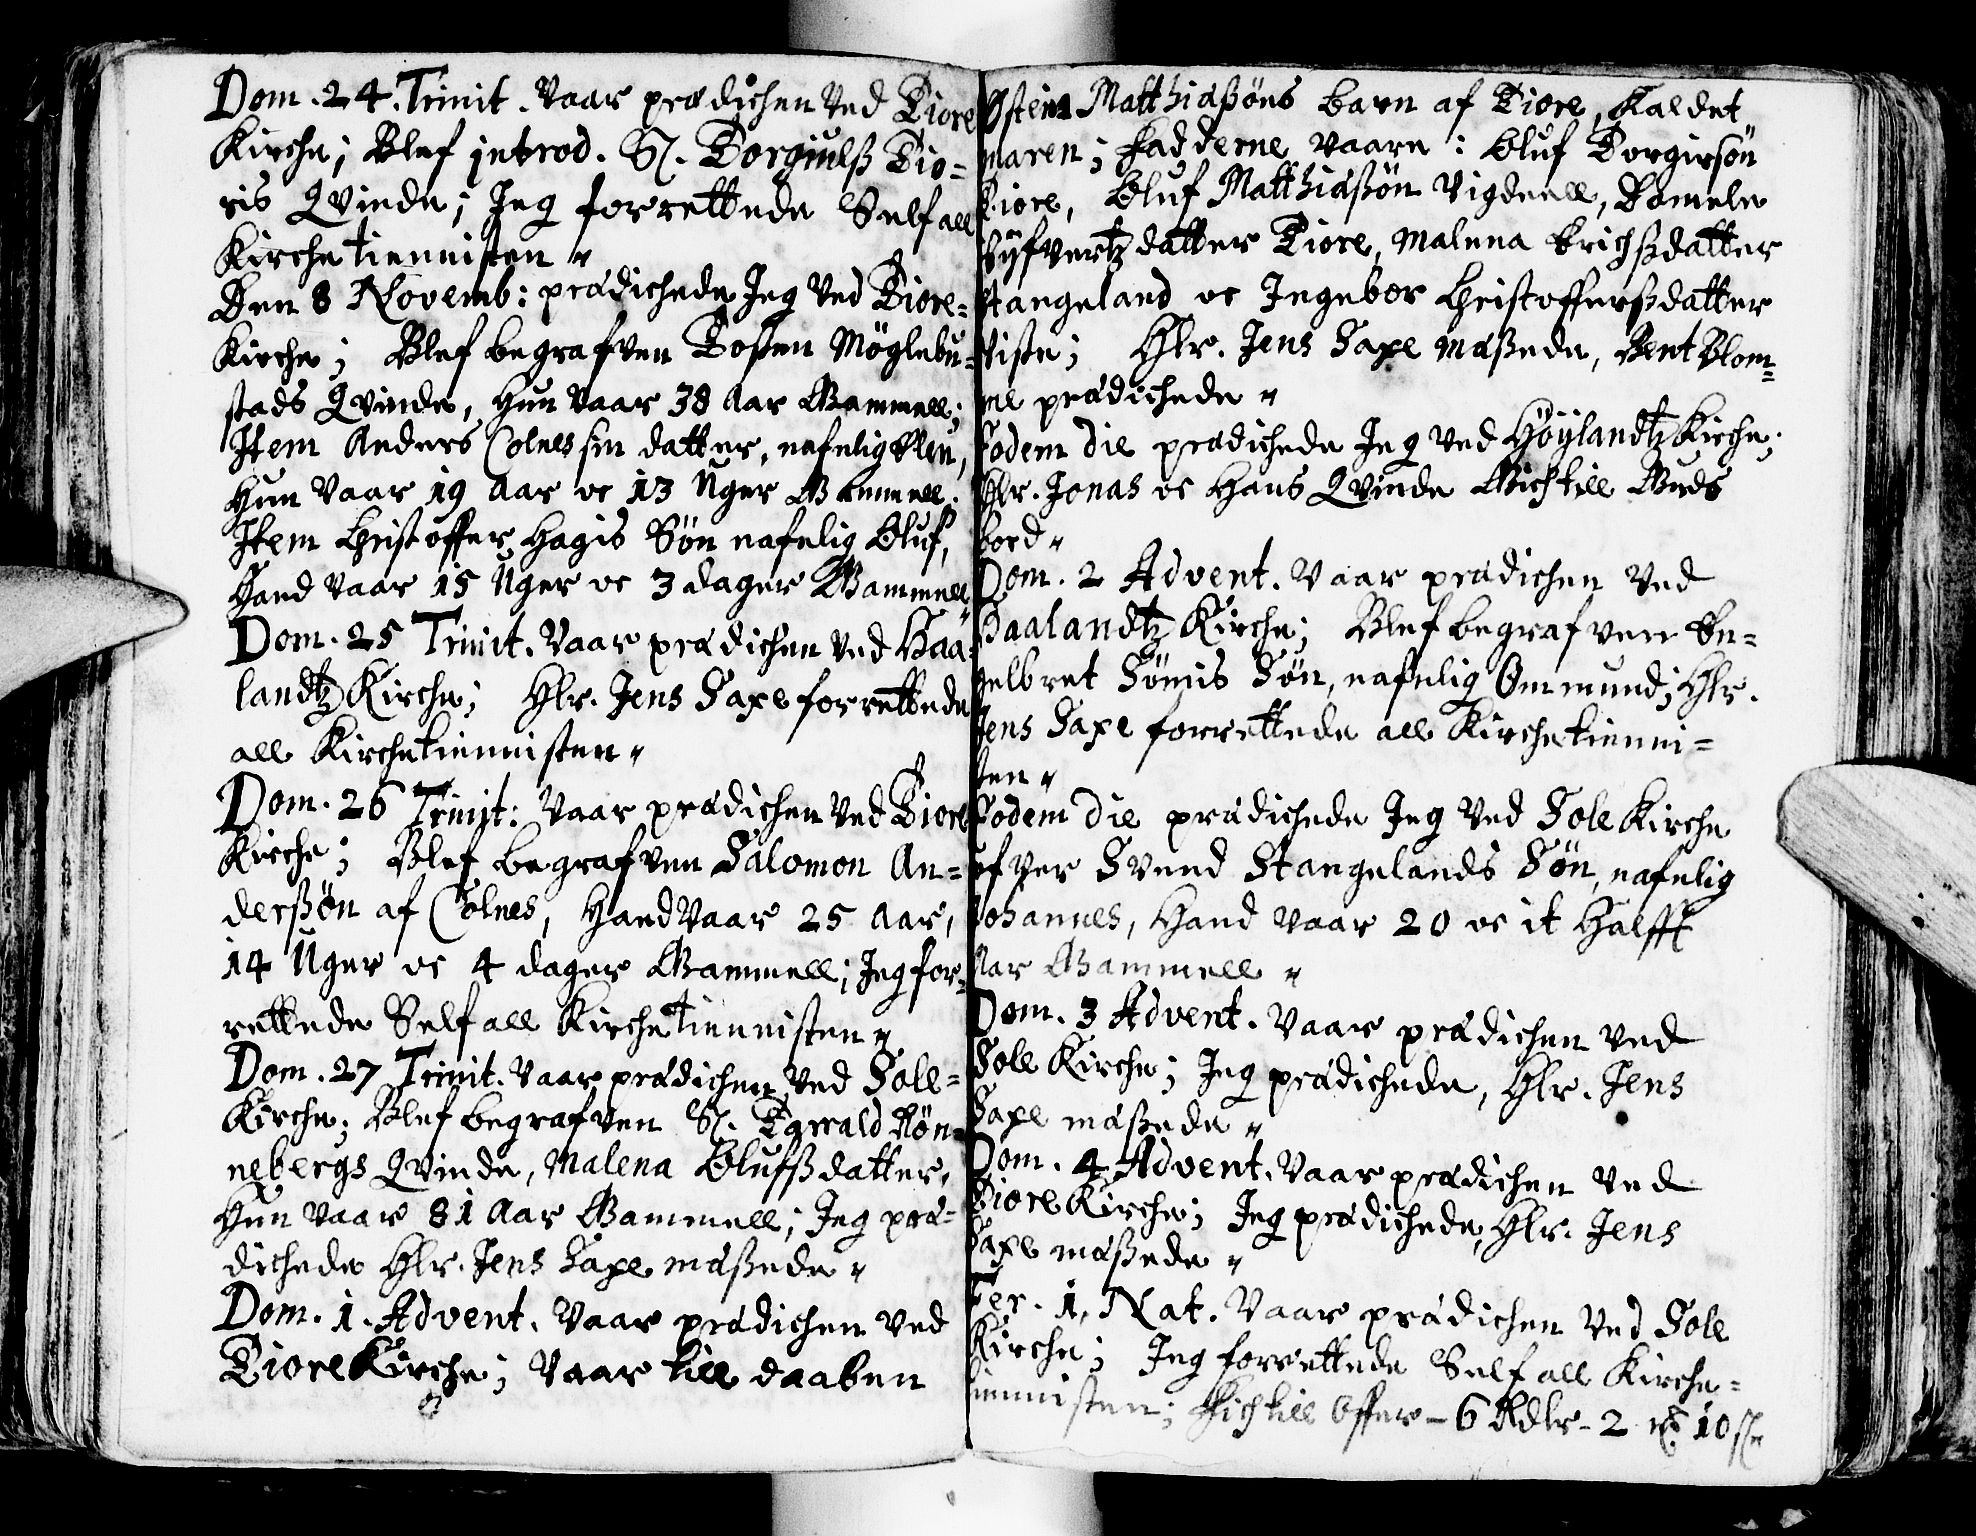 Dom. 24. Trinit. Vaar prædichen Ved Tiore
Kirche; Blef introd. Sl. Torgiulß Tio-
ris Qvinde; Jeg forrettede Self all
Kirchetiennisten "
Den 8 Novemb: prædichede Jeg Ved Tiore-
Kirche; Blef begrafven Tosten Møglebu-
stads Qvinde, Hun Vaar 38 Aar Gammell;
Item Anders Colnes sin datter, nafnlig Elin,
Hun Vaar 19 Aar oc 13 Uger Gammell.
Item Christoffer Hagis Søn nafnlig Oluf,
Hand Vaar 15 Uger oc 3 dager Gammell "
Dom. 25 Trinit. Vaar prædichen Ved Haa-
landtz Kirche; Hr. Jens Saxe forrettede
all Kirchetiennisten "
Dom. 26 Trinit: Vaar prædichen Ved Tiore
Kirche; Blef begrafven Salomon An-
derßøn af Colnes, Hand Vaar 25 Aar,
14 Uger oc 4 dager Gammell; Jeg for-
rettede Self all Kirchetiennisten "
Dom. 27 Trinit. Vaar prædichen Ved Sole-
Kirche; Blef begrafven Sl. Tarrald Røn-
nebergs Qvinde, Malena Olufßdatter,
Hun Vaar 81 Aar Gammell; Jeg præ-
dichede Hr. Jens Saxe mäßede "
Dom. 1. Advent. Vaar prædichen Ved
Tiore Kirche; Vaar till daaben
Østen Matthiaßøns barn af Tiore, Kaldet
Maren; Fadderne Vaare: Oluf Torgirsøn
Tiore, Oluf Matthiaßøn Vigdell, Bomele
Syfvertz datter Tiore, Malena Erichßdatter
Stangeland oc Ingebor Christofferßdatter
Viste; Hr. Jens Saxe mäßede, Bent Blom-
me prædichede "
Eodem die prædichede Jeg Ved Höylandtz Kirche;
Hr. Jonas oc Hans Qvinde Gich till Guds
bord "
Dom. 2 Advent. Vaar prædichen Ved
Haalandtz Kirche; Blef begrafven En-
gelbret Sömis Søn, nafnlig Ommund; Hr.
Jens Saxe forrettede all Kirchetienni-
sten "
Eodem die prædichede Jeg Ved Sole Kirche
ofver Svend Stangelands Søn, nafnlig
Johannes, Hand Vaar 20 oc it Halfft
Aar Gammell "
Dom. 3 Advent. Vaar prædichen Ved
Sole Kirche; Jeg prædichede, Hr. Jens
Saxe mäßede "
Dom. 4 Advent. Vaar prædichen Ved
Tiore Kirche; Jeg prædichede, Hr. Jens
Saxe mäßede "
Fer. 1. Nat. Vaar prædichen Ved Sole
Kirche; Jeg forrettede Self all Kirche-
tiennisten; Fich till Offer - 6 Rdlr - 2 mk 10 ß "